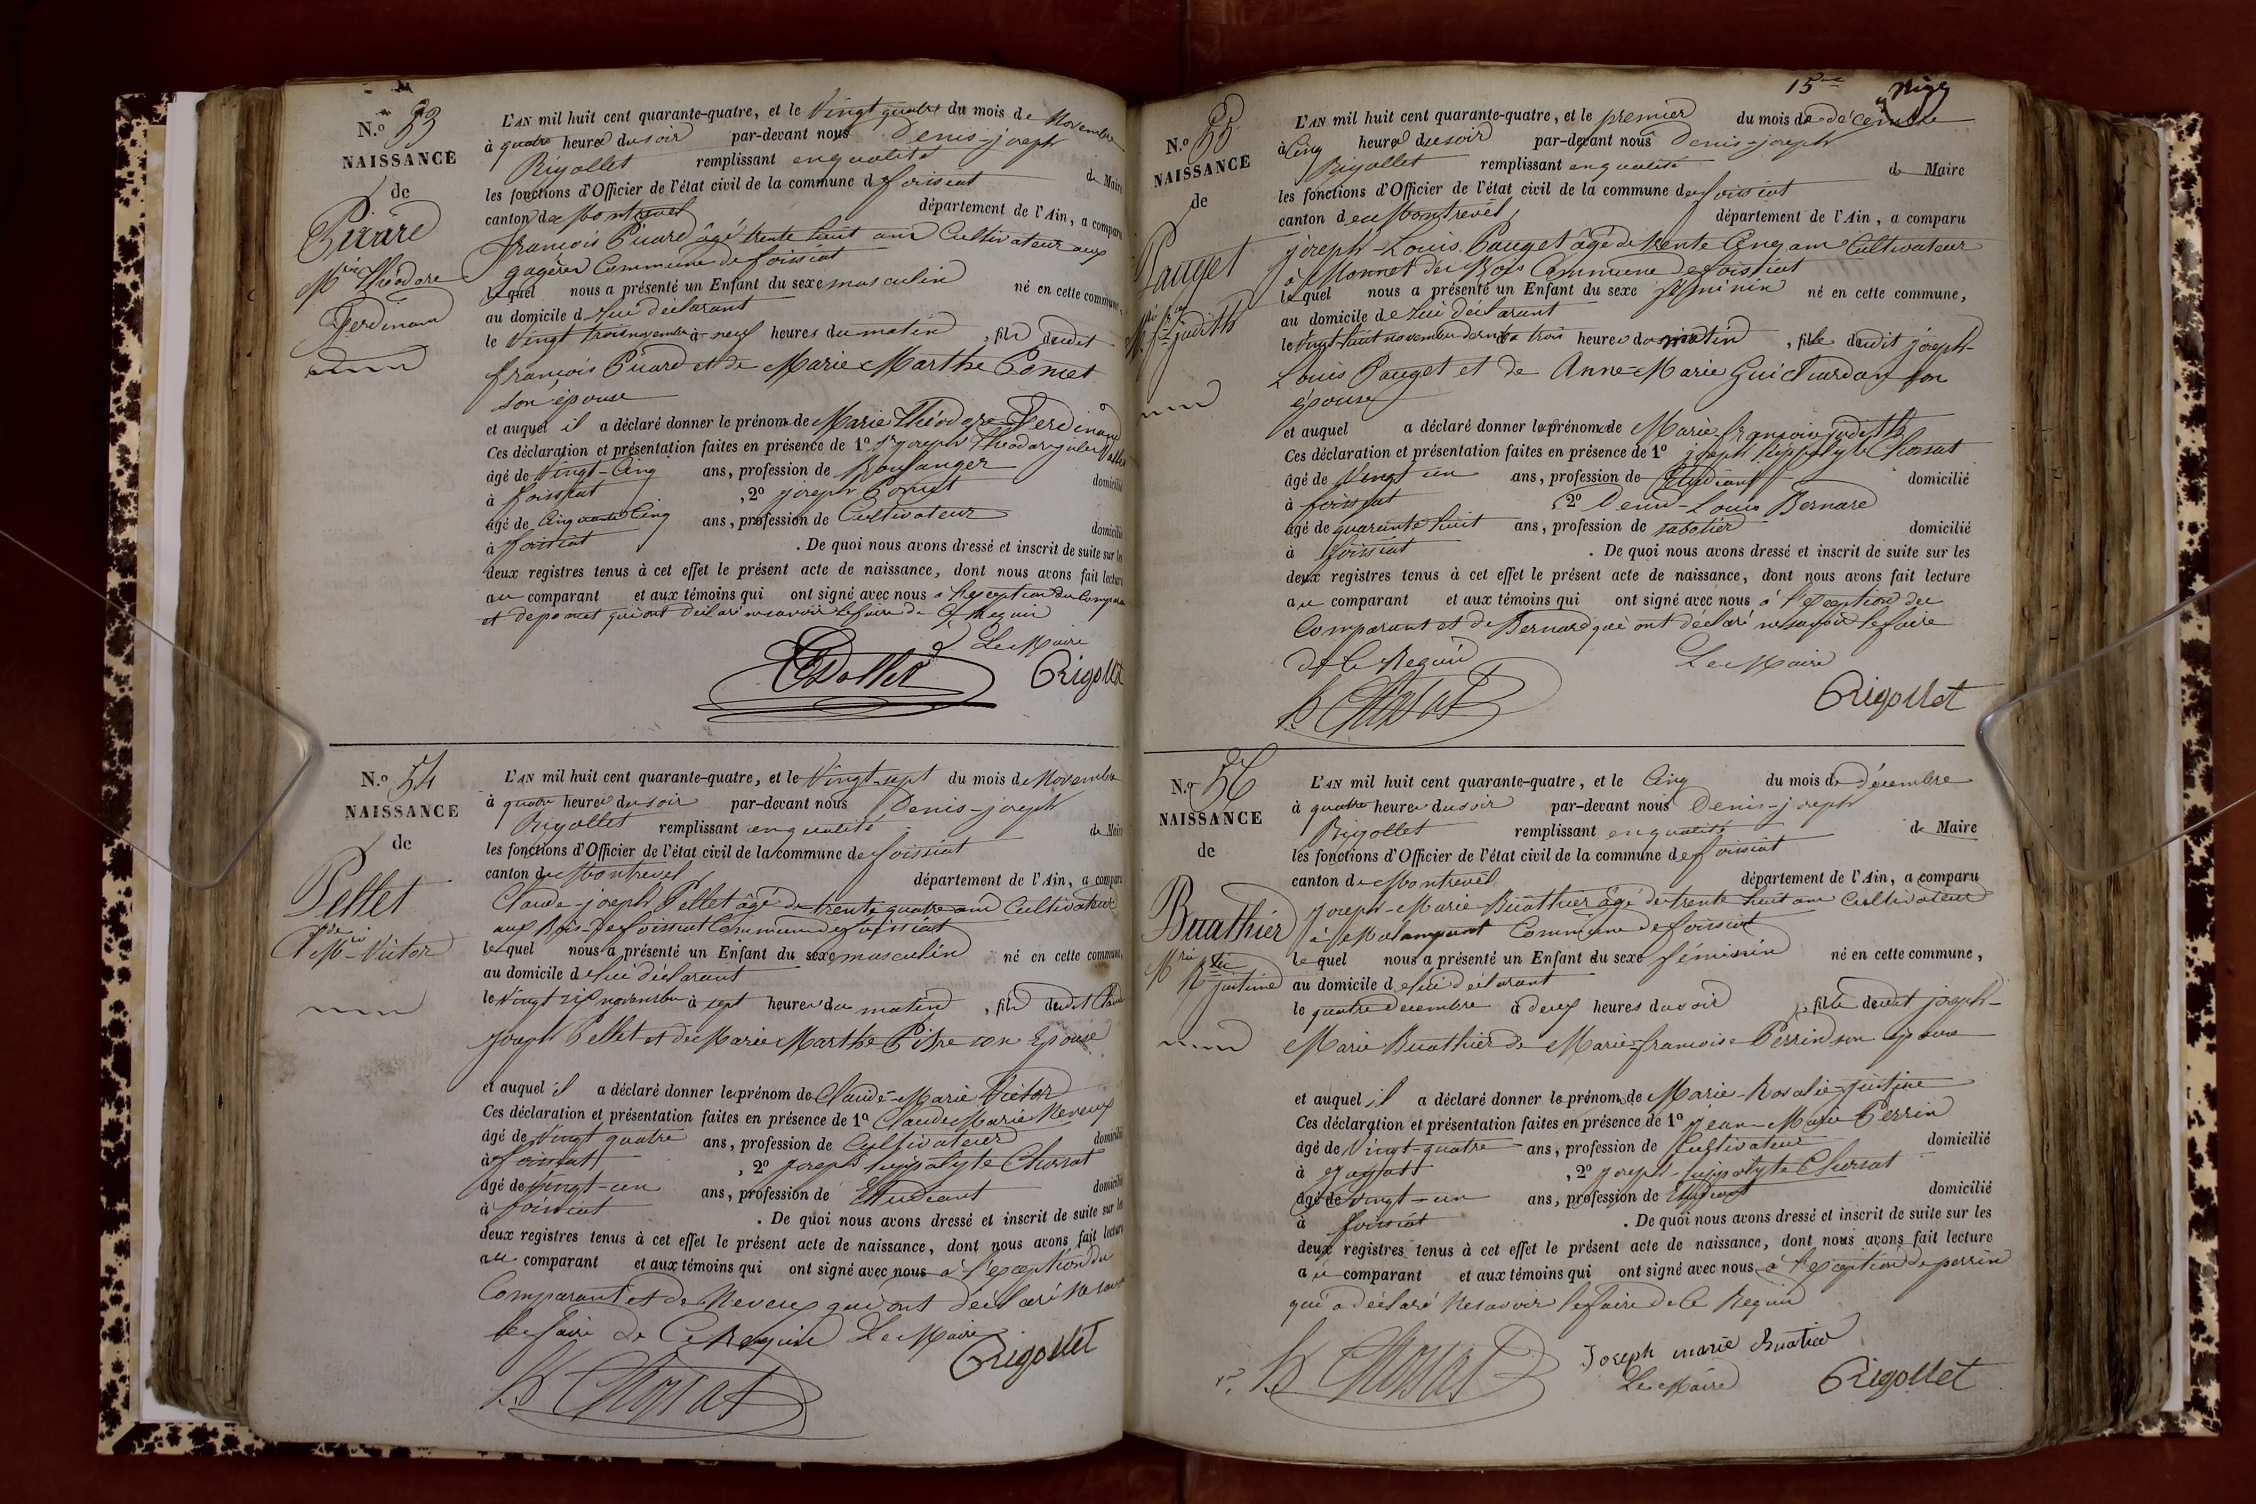 N.º 53
NAISSANCE
de
Picard
M.rie Théodore
Ferdinand
L'AN mil huit cent quarante-quatre, et le Vingt quatre du mois de Novembre
à quatre heures du soir par-devant nous Denis-joseph
Rigollet remplissant en qualité de Maire
les fonctions d'Officier de l'état civil de la commune de foissiat
canton de Montrevel département de l'Ain, a comparu
françois Picard âgé trente huit ans Cultivateur aux
gagères Commune de foissiat
lequel nous a présenté un Enfant du sexe masculin né en cette commune,
au domicile de lui déclarant
le Vingt trois novembre à neuf heures du matin, fils dudit
françois Picard et de Marie Marthe Pomet
son épouse
et auquel il a déclaré donner le prénom de Marie Théodore Ferdinand
Ces déclaration et présentation faites en présence de 1º joseph Théodore jules
âgé de Vingt-Cinq ans, profession de Boulanger domicilié
à foissiat , 2º joseph Pomet
âgé de Cinquante Cinq ans, profession de Cultivateur domicilié
à foissiat . De quoi nous avons dressé et inscrit de suite sur les
deux registres tenus à cet effet le présent acte de naissance, dont nous avons fait lecture
au comparant et aux témoins qui ont signé avec nous à l'exception du Comparant
et de pomet qui ont déclaré ne savoir le faire de Ce Requis
Le Maire
Rigollet
N.º 54
NAISSANCE
de
Pellet
C.de M.rie Victor
L'AN mil huit cent quarante-quatre, et le Vingt-sept du mois de Novembre
à quatre heures du soir par-devant nous Denis-joseph
Rigollet remplissant en qualité de Maire
les fonctions d'Officier de l'état civil de la commune de foissiat
canton de Montrevel département de l'Ain, a comparu
Claude-joseph Pellet âgé de trente quatre ans Cultivateur
aux Bois-de foissiat Commune de foissiat
lequel nous a présenté un Enfant du sexe masculin né en cette commune,
au domicile de lui déclarant
le Vingt six novembre à sept heures du matin, fils dudit Claude
joseph Pellet et de Marie Marthe son Epouse
et auquel il a déclaré donner le prénom de Claude-Marie Victor
Ces déclaration et présentation faites en présence de 1º Claude Marie Neveux
âgé de Vingt quatre ans, profession de Cultivateur domicilié
à foissiat , 2º joseph hippolyte Chossat
âgé de Vingt-un ans, profession de Etudiant domicilié
à foissiat . De quoi nous avons dressé et inscrit de suite sur les
deux registres tenus à cet effet le présent acte de naissance, dont nous avons fait lecture
au comparant et aux témoins qui ont signé avec nous à l'exception du
Comparant et de Neveux qui ont déclaré Ne savoir
le faire de Ce Requis Le Maire
Rigollet
h. Chossat
15me
N.º 55
NAISSANCE
de
Pauget
M.rie f.se judith
L'AN mil huit cent quarante-quatre, et le premier du mois de décembre
à Cinq heures du soir par-devant nous Denis-joseph
Rigollet remplissant en qualité de Maire
les fonctions d'Officier de l'état civil de la commune de foissiat
canton de Montrevel département de l'Ain, a comparu
joseph-Louis Pauget âgé de trente Cinq ans Cultivateur
à Monnet des Bois Commune de foissiat
lequel nous a présenté un Enfant du sexe féminin né en cette commune,
au domicile de lui déclarant
le Vingt-huit novembre dernier à trois heures du matin, fille dudit joseph-
Louis Pauget et de Anne-Marie Guichardan son
épouse
et auquel a déclaré donner le prénom de Marie-françoise judith
Ces déclaration et présentation faites en présence de 1º joseph hippolyte Chossat
âgé de Vingt un ans, profession de Etudiant domicilié
à foissiat , 2º Denis-Louis Bernard
âgé de quarante huit ans, profession de sabotier domicilié
à foissiat . De quoi nous avons dressé et inscrit de suite sur les
deux registres tenus à cet effet le présent acte de naissance, dont nous avons fait lecture
au comparant et aux témoins qui ont signé avec nous à l'exception du
Comparant et de Bernard qui ont déclaré ne savoir le faire
de Ce Requis Le Maire
h. Chossat Rigollet
N.º 56
NAISSANCE
de
Buathier
M.rie R.lie justine
L'AN mil huit cent quarante-quatre, et le Cinq du mois de décembre
à quatre heures du soir par-devant nous Denis-joseph
Rigollet remplissant en qualité de Maire
les fonctions d'Officier de l'état civil de la commune de foissiat
canton de Montrevel département de l'Ain, a comparu
joseph-Marie Buathier âgé de trente huit ans Cultivateur
à Commune de foissiat
lequel nous a présenté un Enfant du sexe féminin né en cette commune,
au domicile de lui déclarant
le quatre decembre à deux heures du soir, fille dudit joseph-
Marie Buathier de Marie-francoise Perrin son épouse
et auquel il a déclaré donner le prénom de Marie-Rosalie-justine
Ces déclaration et présentation faites en présence de 1º jean-Marie Perrin
âgé de Vingt-quatre ans, profession de Cultivateur domicilié
à , 2º joseph-hippolyte Chossat
âgé de Vingt-un ans, profession de Etudiant domicilié
à foissiat . De quoi nous avons dressé et inscrit de suite sur les
deux registres tenus à cet effet le présent acte de naissance, dont nous avons fait lecture
au comparant et aux témoins qui ont signé avec nous à l'exception de perrin
qui a déclaré Ne savoir le faire de Ce Requis
h. Chossat Joseph marie Buatier
Le Maire Rigollet